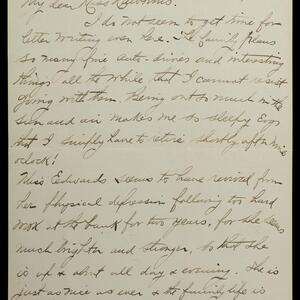 My dear Miss
I do not seem to get time for
letter writing even here. The family plans
so many fine auto-drives and interesting
things all the while that I cannot resist
going with them. Being out so much in the
sun and air makes me so sleepy
that I simply have to retire shortly after nine
o'clock!
Miss Edwards seems to have revived from
her physical depression following too hard
work at the bank for two years, for she seems
much brighter and stronger, so that she
is up & about all day & evening. She is
just as nice as ever & the family life is